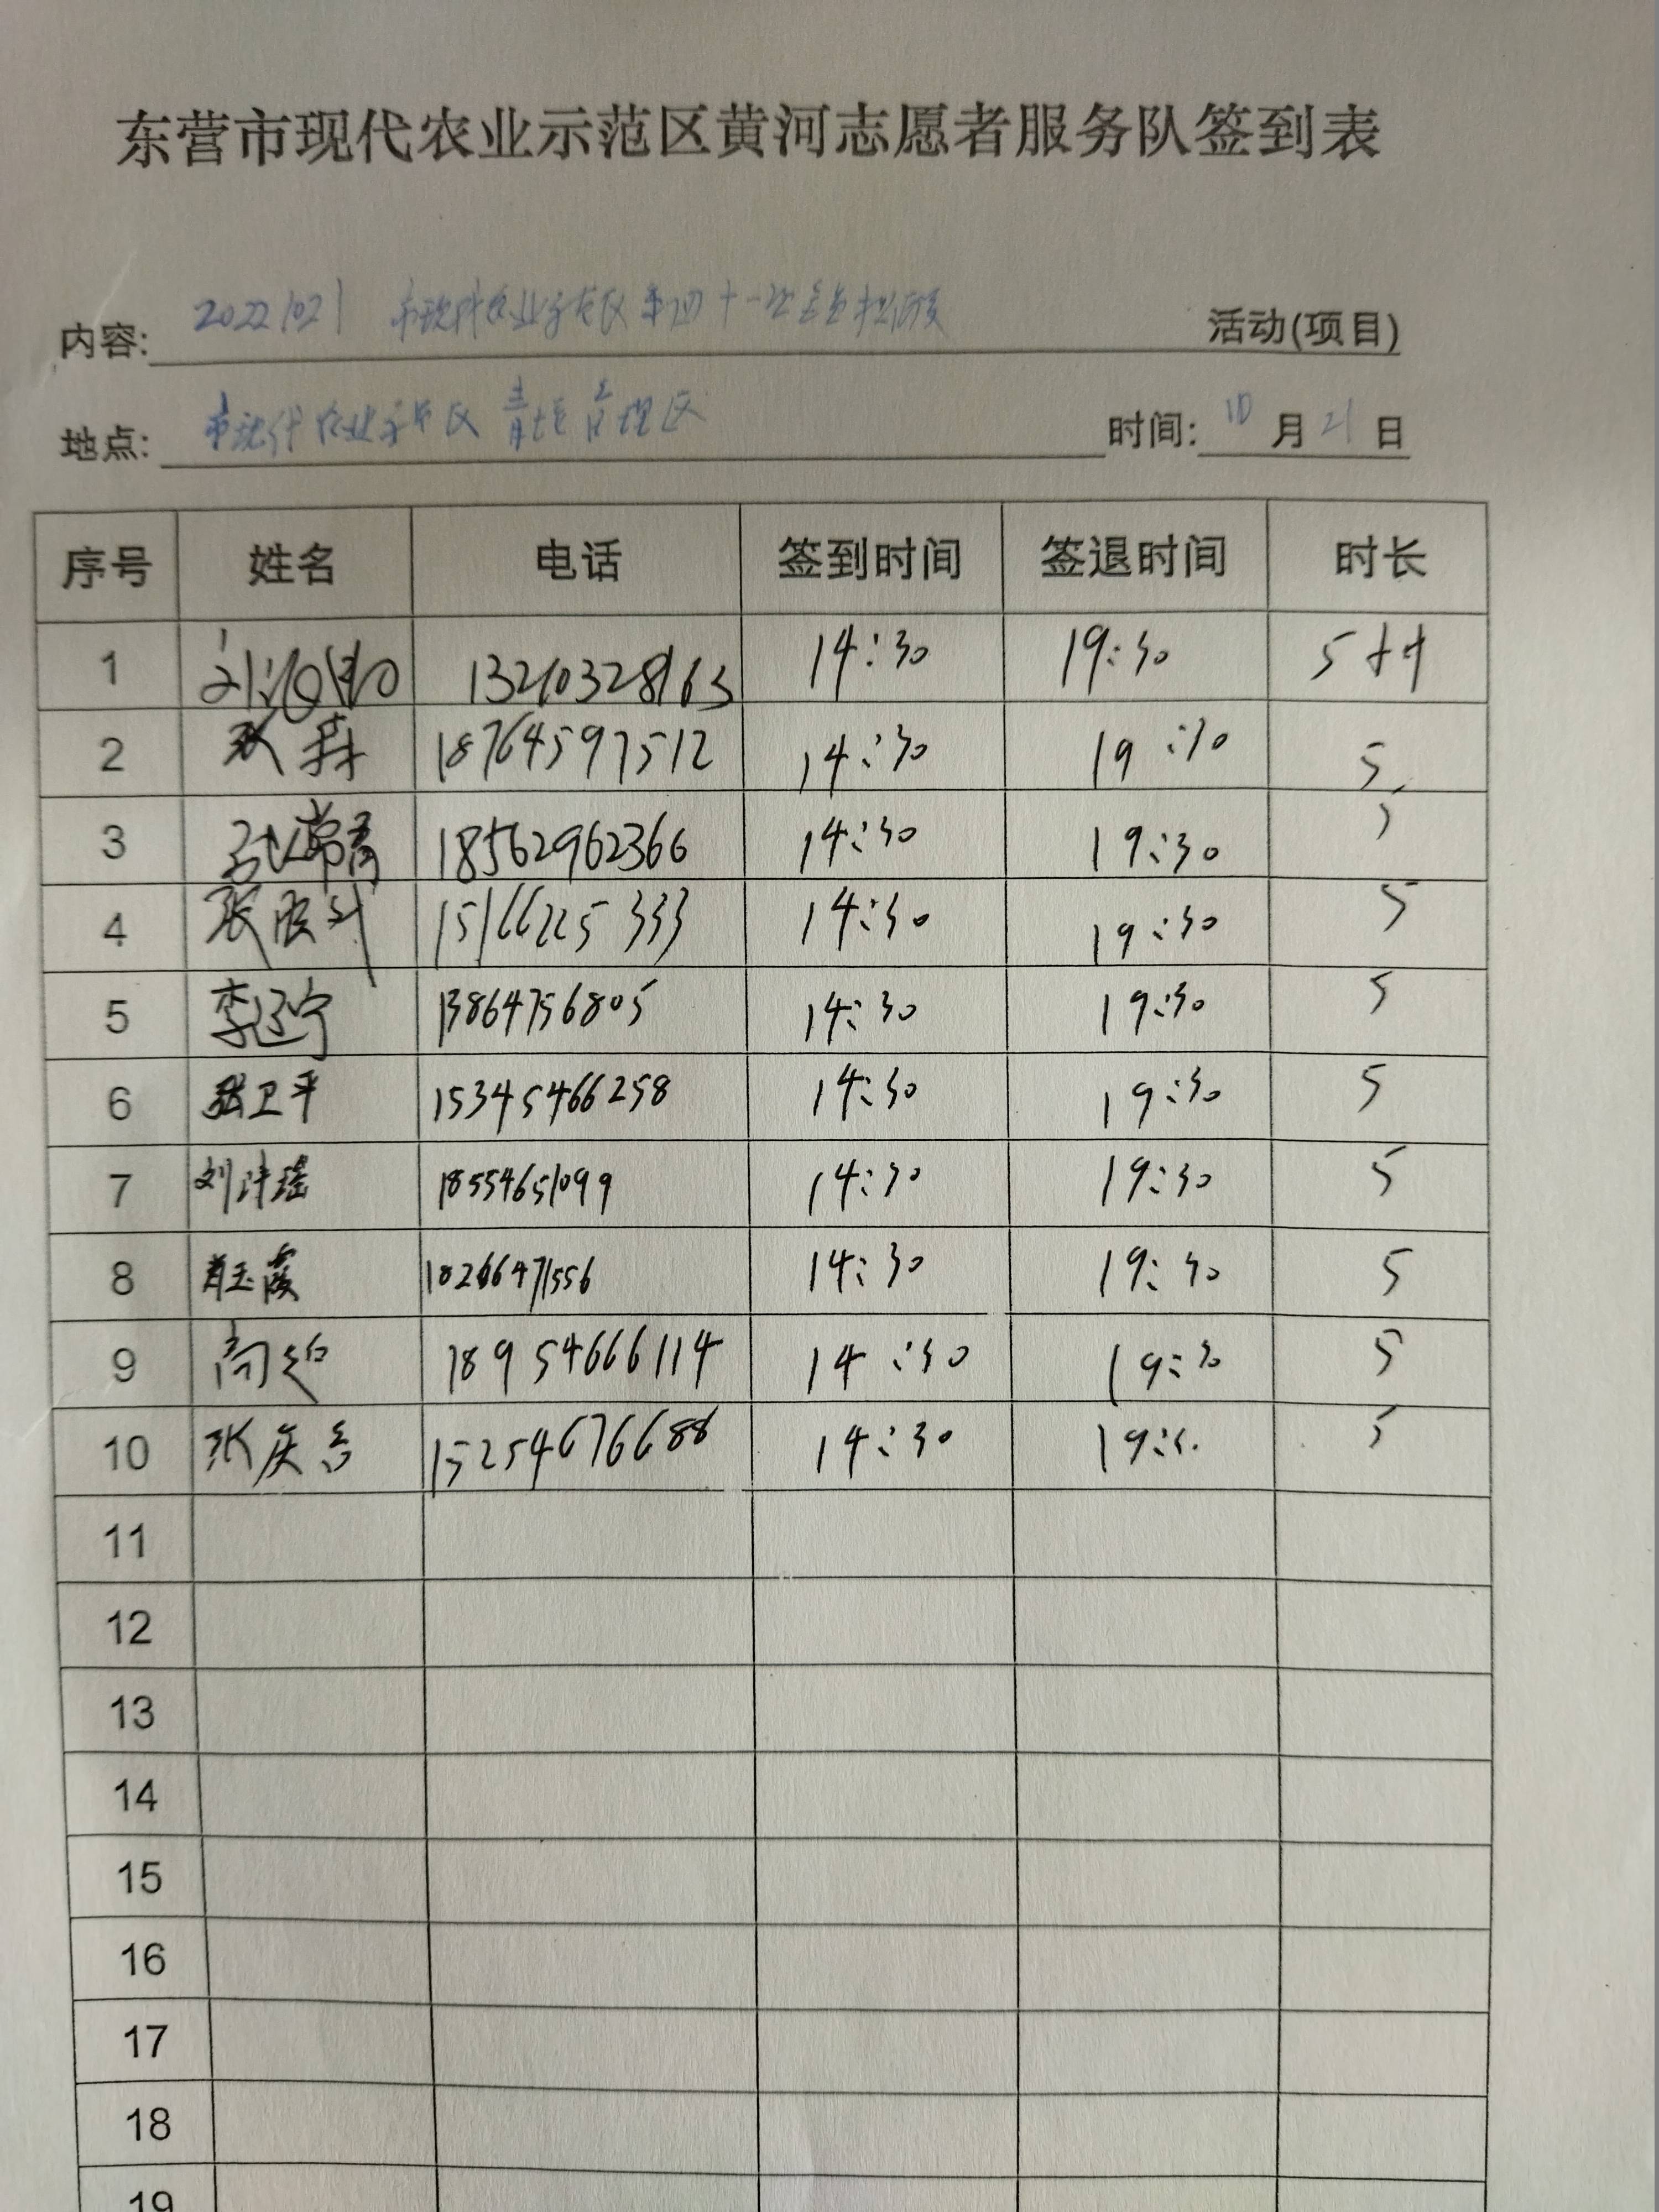 东营市现代农业示范区黄河志愿者服务队签到表
内容: 20221021 市现代农业示范区第四十一次全员核酸 活动(项目)
地点: 市现代农业示范区 青坨管理区 时间: 10 月 21 日
序号 姓名 电话 签到时间 签退时间 时长
1 13210328163 14:30 19:30 5小时
2 18764597512 14:30 19:30 5
3 18562962366 14:30 19:30 5
4 15166225333 14:30 19:30 5
5 李辽宁 13864756805 14:30 19:30 5
6 张卫平 15345466258 14:30 19:30 5
7 18554651099 14:30 19:30 5
8 肖玉霞 18266471556 14:30 19:30 5
9 尚超 18954666114 14:30 19:30 5
10 15254676688 14:30 5
11
12
13
14
15
16
17
18
19